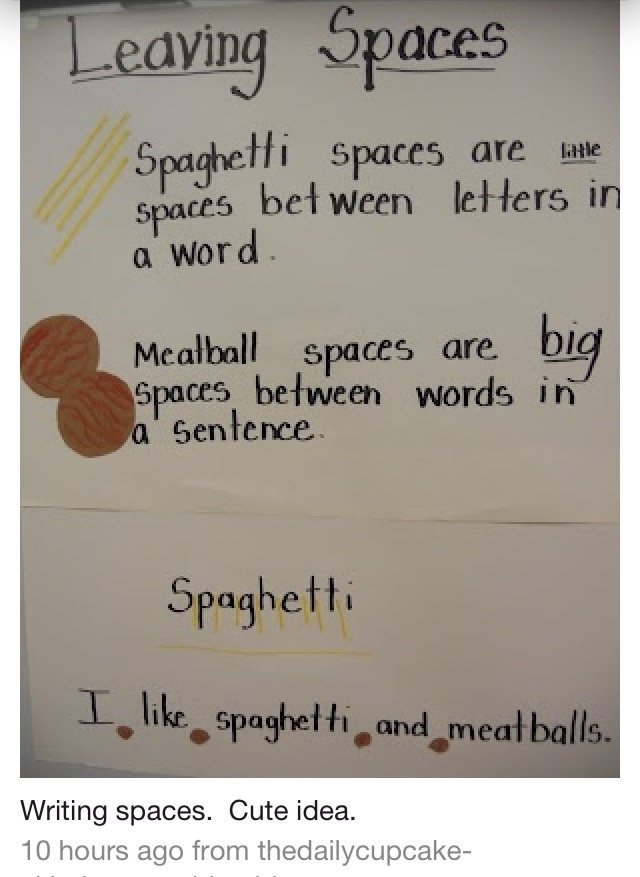 Leaving Spaces
Spaghetti spaces are little
spaces between letters in
a word.
Meatball spaces are big
spaces between words in
a sentence.
Spaghetti
I like spaghetti and meatballs.
Writing spaces.  Cute idea.
10 hours ago from thedailycupcake-